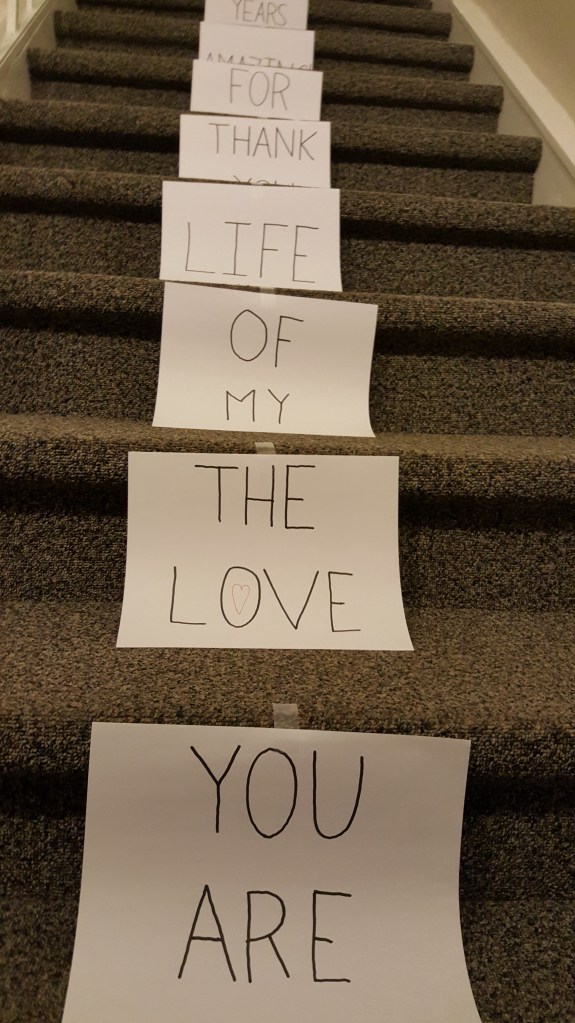 YOU
ARE
THE
LOVE
OF
MY
LIFE
THANK
YOU
FOR
AMAZING
YEARS